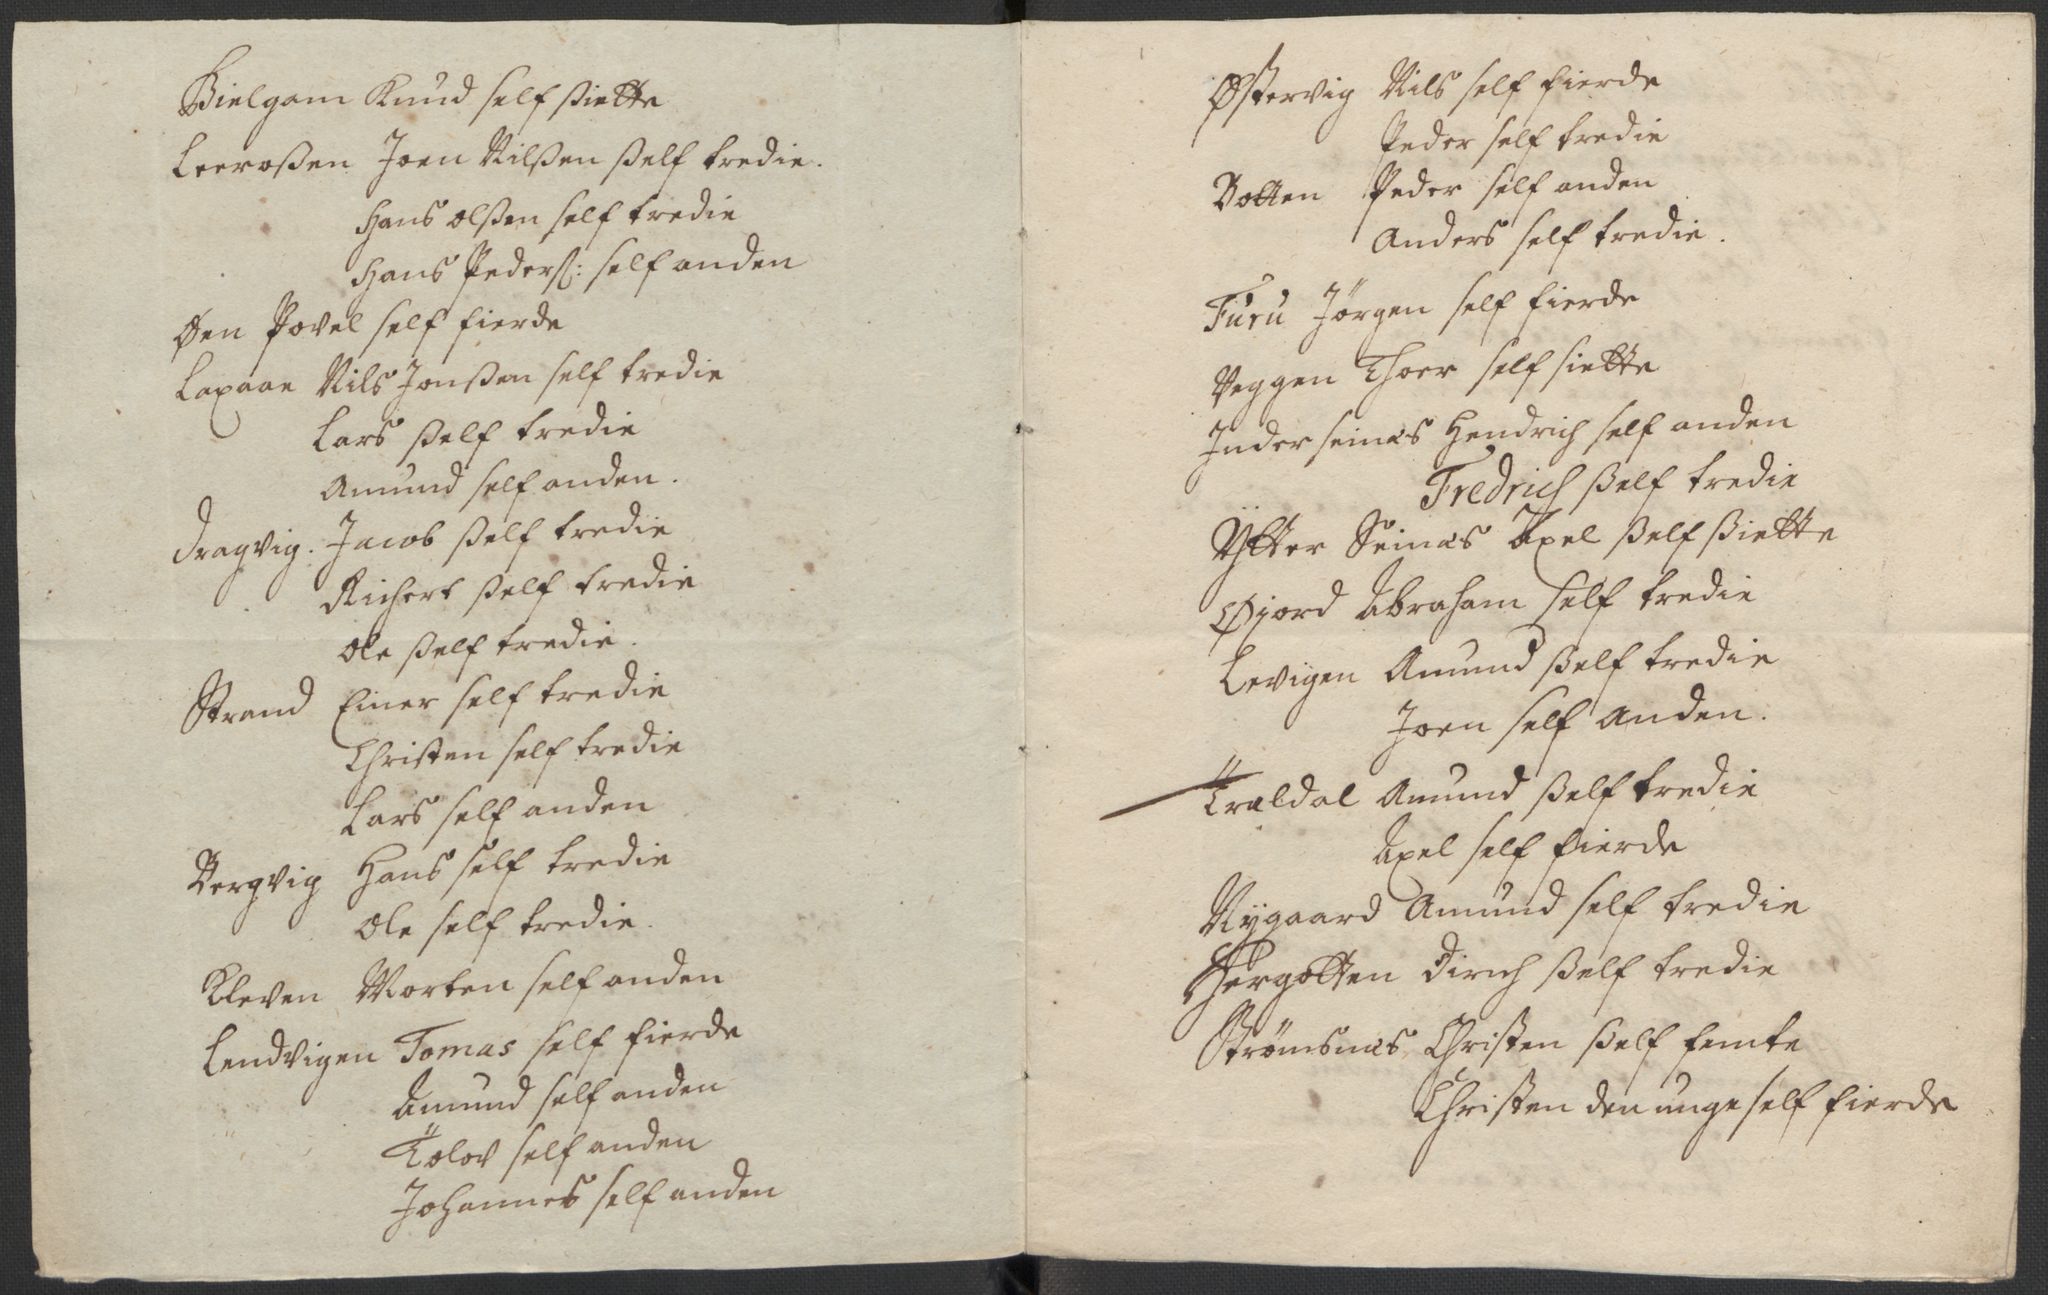 Bielgam Knud self siette
Leeroßen Joen Nilßen ßelf tredie.
Hans olßen self tredie
Hans Pederß: self anden
Øen Povel self fierde
Laxaae Nils Jonßen self tredie
Lars ßelf tredie
Amund self anden.
Dragvig. Jacob ßelf tredie
Richert ßelf tredie
Ole ßelf tredie.
Strand Einer self tredie
Christen self tredie
Lars self anden
Bergvig Hans self tredie
Ole self tredie.
Kleven Morten self anden
Lendvigen Tomas self fierde
Amund self anden
Tolov self anden
Johannes self anden
Østervig Nils self fierde
Peder self tredie
Botten Peder self anden
Anders self tredie.
Furu Jörgen self fierde
Veggen Thoer self siette
Inderseinæs Hendrich self anden
Fredrich ßelf tredie
Ytter Seinæs Axel ßelf ßiette
Øjord Abraham self tredie
Levigen Amund ßelf tredie
Joen self anden.
Trældal Amund ßelf tredie
Axel self fierde
Nygaard Amund self tredie
Hergotten Dirich ßelf tredie
Strømsnæs Christen ßelf femte
Christen den unge self fierde